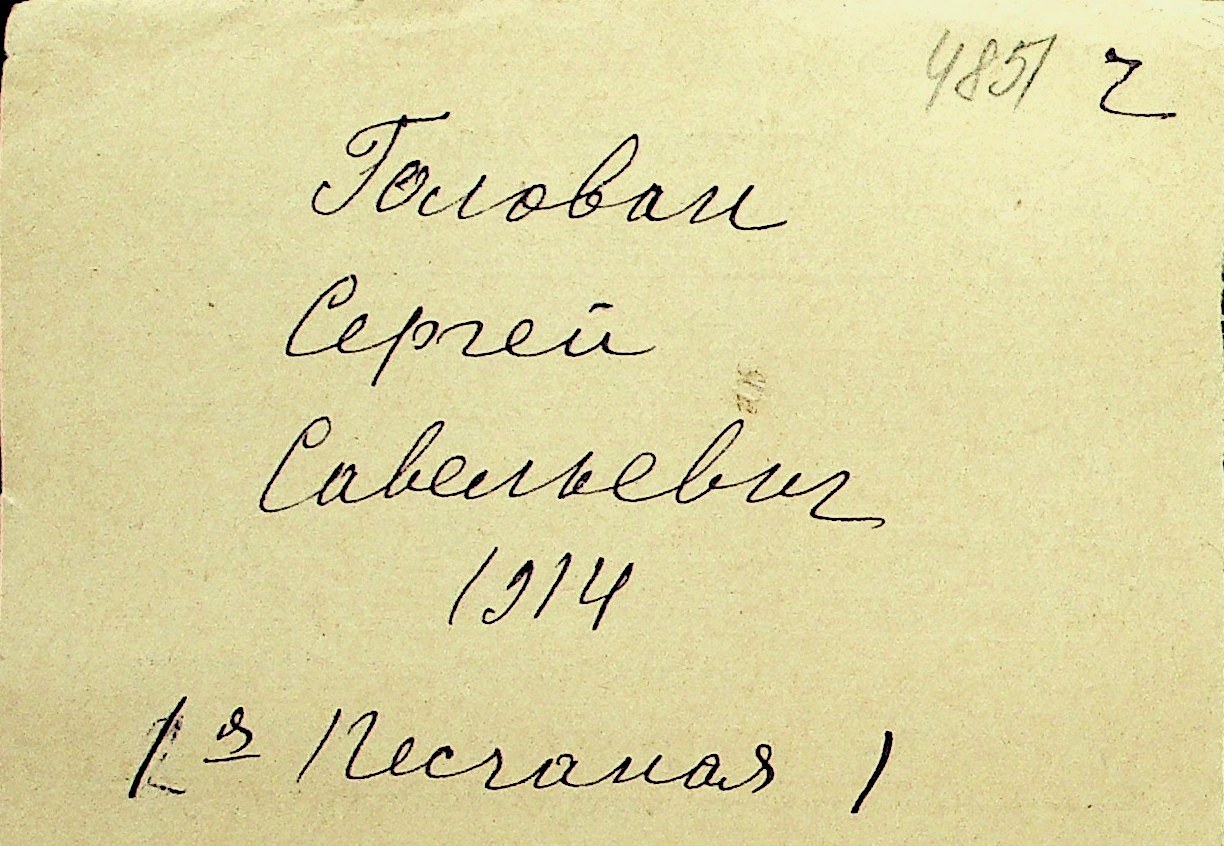 4851 ч
Голован
Сергей
Савельевич
1914
1 я Песчаная 1